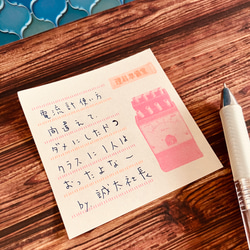 電流計使い方
間違えて
ダメにしたやつ
クラスに1人は
おったよなー
by 誠太社長